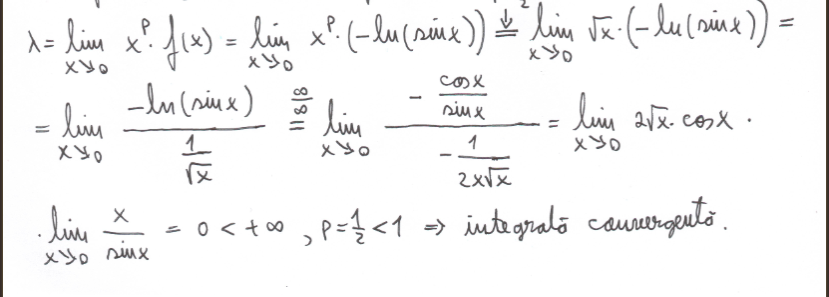 λ = lim_{x↘0} x^p · f(x) = lim_{x↘0} x^p · (-ln(sin x)) =^{↓ 2} lim_{x↘0} √x · (-ln(sin x)) =
= lim_{x↘0} \frac{-ln(sin x)}{\frac{1}{√x}} =^{\frac{∞}{∞}} lim_{x↘0} \frac{-\frac{cos x}{sin x}}{-\frac{1}{2x√x}} = lim_{x↘0} 2√x · cos x ·
· lim_{x↘0} \frac{x}{sin x} = 0 < +∞ , p = \frac{1}{2} < 1 ⇒ integrală convergentă.